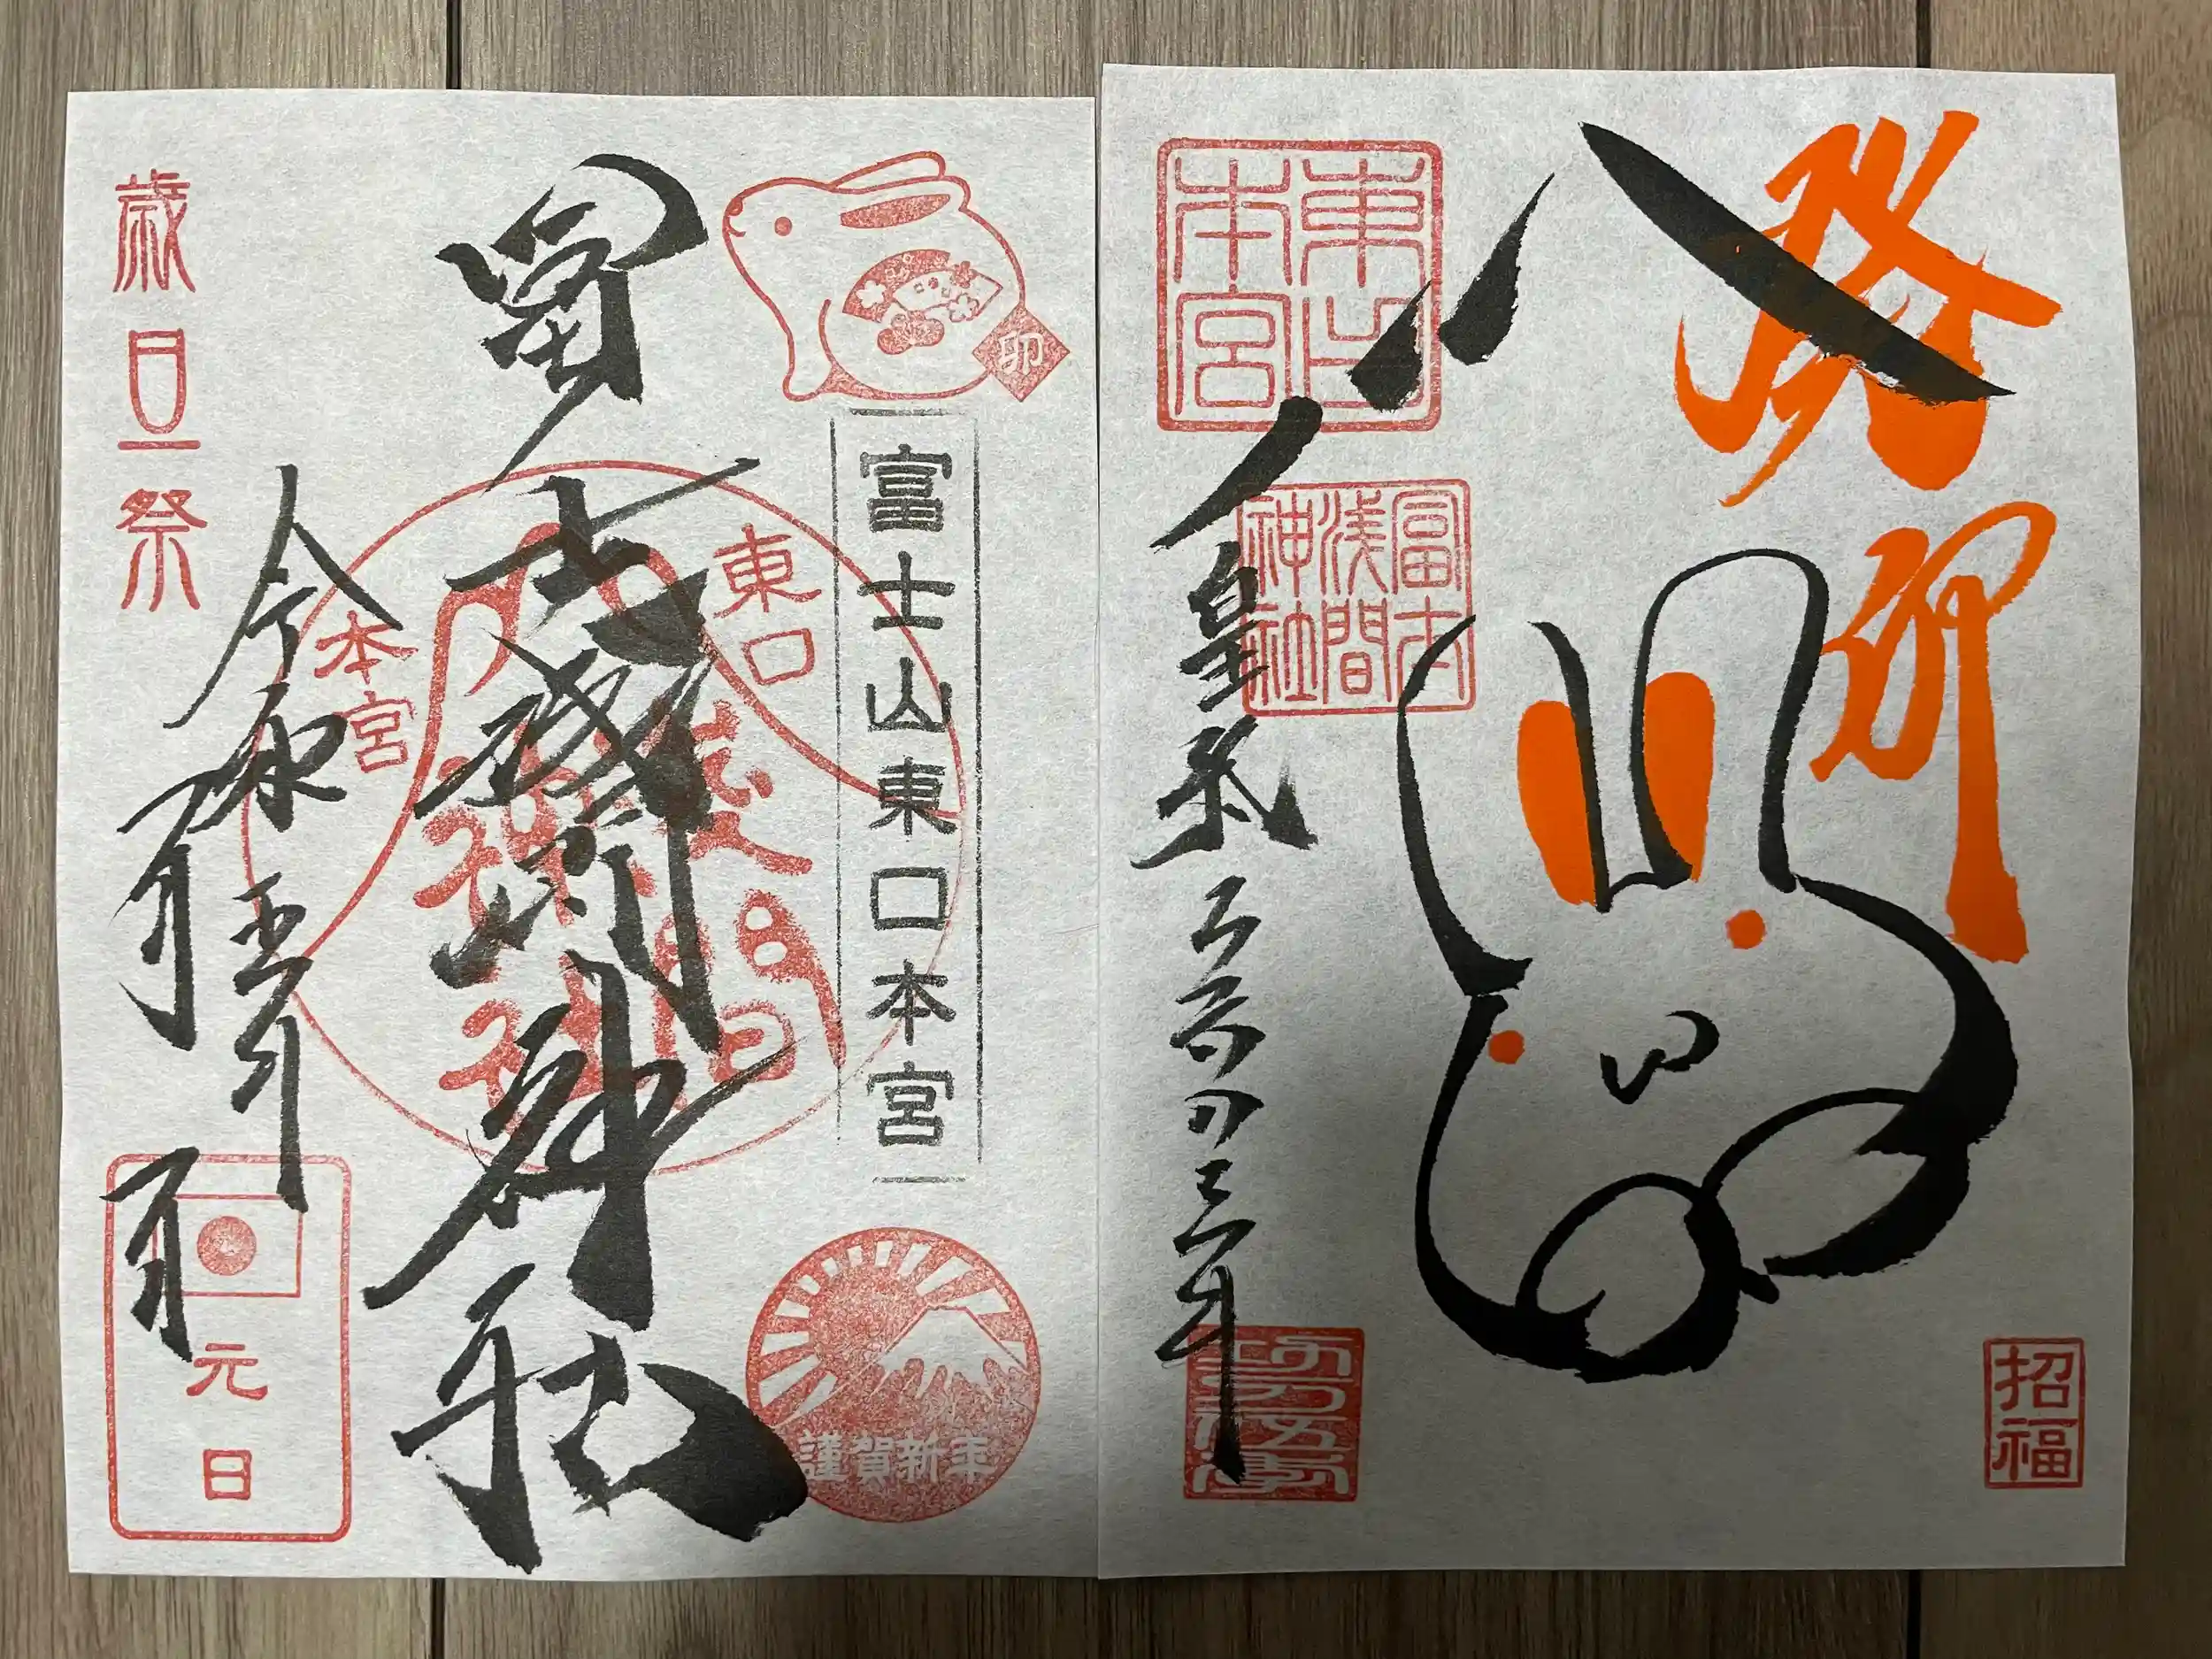 癸卯
招福
東口本宮
冨士浅間神社
皇紀
卯
富士山東口本宮
謹賀新年
冨士浅間神社
東口
本宮
浅間
神社
令和五年
一月
一日
歳旦祭
元日